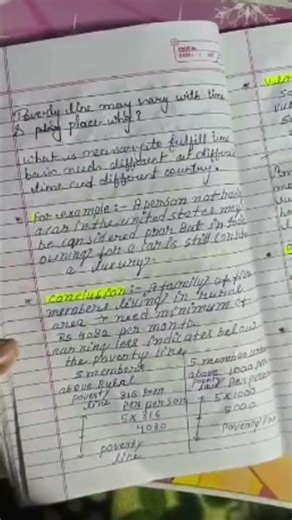 Poverty line may vary with time
& place why?
What is necessary to fulfill the
basic much different at different
time and different country.
For example :- A person not having
a car in the united states may
be considered poor. But in
owning for a car is still
a luxury.
Conclusion :- A family of five
members living in rural
area need minimum of
Rs 4080 per month
earning less indicates below
the poverty line.
5 members
above rural
poverty 816 per
line per person
5 x 816
4080
poverty
line
5 members
above 1000 per
poverty
line per person
5 x 1000
5000
Poverty line